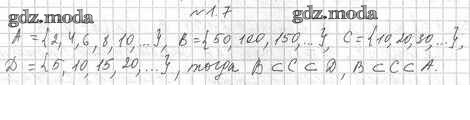 №1.7
gdz.moda gdz.moda
A = {2, 4, 6, 8, 10, ...}, B = {50, 100, 150, ...}, C = {10, 20, 30, ...},
D = {5, 10, 15, 20, ...}, тогда B ⊂ C ⊂ D, B ⊂ C ⊂ A.